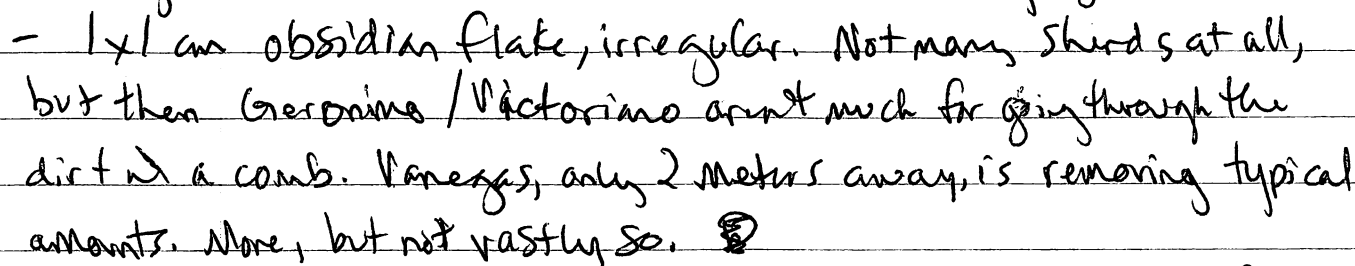 - 1x1 cm obsidian flake, irregular. Not many sherds at all,
but then Geronimo / Victoriano aren't much for going through the
dirt w/ a comb. Vanegas, only 2 meters away, is removing typical
amounts. More, but not vastly so.